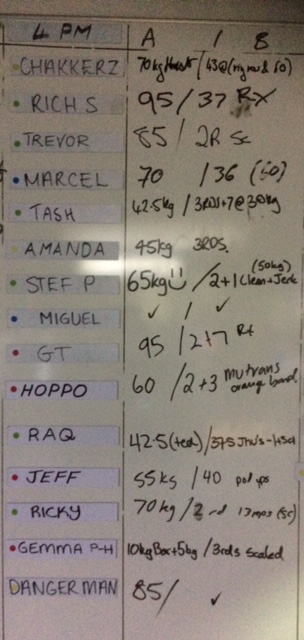 4 PM A | B
CHAKKERZ 70kg / 43@(ring row & 60)
RICH S 95 / 37 RX
TREVOR 85 / 2R Sc
MARCEL 70 / 36 (60)
TASH 42.5kg / 3RDS+7@30kg
AMANDA 45kg 3RDS.
(50kg)
STEF P 65kg / 2+1 Clean+Jerk
MIGUEL ✓ / ✓
GT 95 / 2+7 RX
HOPPO 60 / 2+3 Mu trans
orange band
RAQ 42.5 (tech) /
JEFF 55kg / 40 pull ups
RICKY 70kg / 2 rd 17 reps (sc)
GEMMA P-H 10kg Bar+5kg / 3rds Scaled
DANGERMAN 85 / ✓